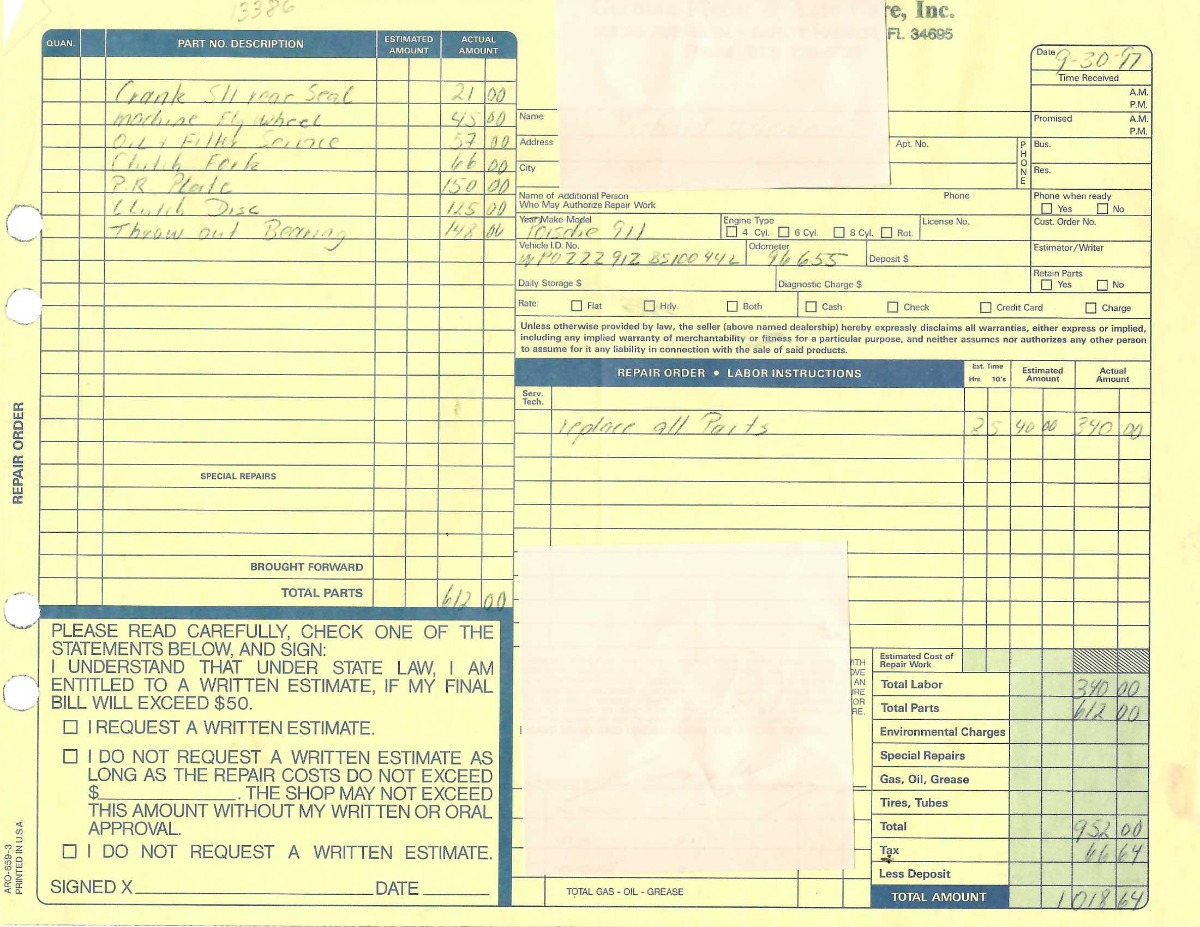 13386
re, Inc.
FL 34695
QUAN. PART NO. DESCRIPTION ESTIMATED AMOUNT ACTUAL AMOUNT
Crank Sll rear Seal 21 00
machine Flywheel 45 00
Oil & Filter Service 57 00
Clutch Fork 66 00
P.R Plate 150 00
Clutch Disc 125 00
Throw out Bearing 148 00
SPECIAL REPAIRS
BROUGHT FORWARD
TOTAL PARTS 612 00
REPAIR ORDER
ARO-659-3
PRINTED IN U.S.A.
PLEASE READ CAREFULLY, CHECK ONE OF THE
STATEMENTS BELOW, AND SIGN:
I UNDERSTAND THAT UNDER STATE LAW, I AM
ENTITLED TO A WRITTEN ESTIMATE, IF MY FINAL
BILL WILL EXCEED $50.
I REQUEST A WRITTEN ESTIMATE.
I DO NOT REQUEST A WRITTEN ESTIMATE AS
LONG AS THE REPAIR COSTS DO NOT EXCEED
$____________. THE SHOP MAY NOT EXCEED
THIS AMOUNT WITHOUT MY WRITTEN OR ORAL
APPROVAL.
I DO NOT REQUEST A WRITTEN ESTIMATE.
SIGNED X____________ DATE ______
Date 9-30-97
Time Received
A.M.
P.M.
Name
Promised A.M.
P.M.
Address Apt. No. PHONE Bus.
City Res.
Name of Additional Person
Who May Authorize Repair Work Phone Phone when ready
Yes No
Year Make Model Porsche 911 Engine Type 4 Cyl. 6 Cyl. 8 Cyl. Rot. License No. Cust. Order No.
Vehicle I.D. No. WPOZZZ91Z BS100442 Odometer 96655 Deposit $ Estimator/Writer
Daily Storage $ Diagnostic Charge $ Retain Parts
Yes No
Rate: Flat Hrly. Both Cash Check Credit Card Charge
Unless otherwise provided by law, the seller (above named dealership) hereby expressly disclaims all warranties, either express or implied,
including any implied warranty of merchantability or fitness for a particular purpose, and neither assumes nor authorizes any other person
to assume for it any liability in connection with the sale of said products.
REPAIR ORDER • LABOR INSTRUCTIONS Est. Time Hrs. 10's Estimated Amount Actual Amount
Serv. Tech.
replace all Parts 8 5 40 00 340 00
ITH
OVE
AN
URE
OR
RE.
Estimated Cost of
Repair Work
Total Labor 340 00
Total Parts 612 00
Environmental Charges
Special Repairs
Gas, Oil, Grease
Tires, Tubes
Total 952 00
Tax 66 64
Less Deposit
TOTAL GAS - OIL - GREASE
TOTAL AMOUNT 1018 64